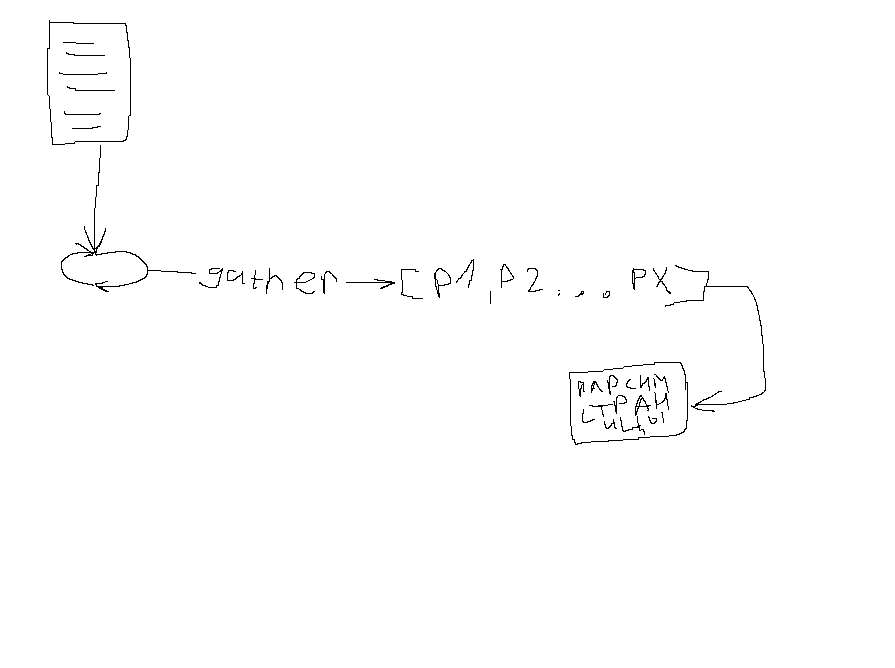 gather
[P1, P2 . . . PX]
ПАРСИМ
СТРАН
ИЦЫ